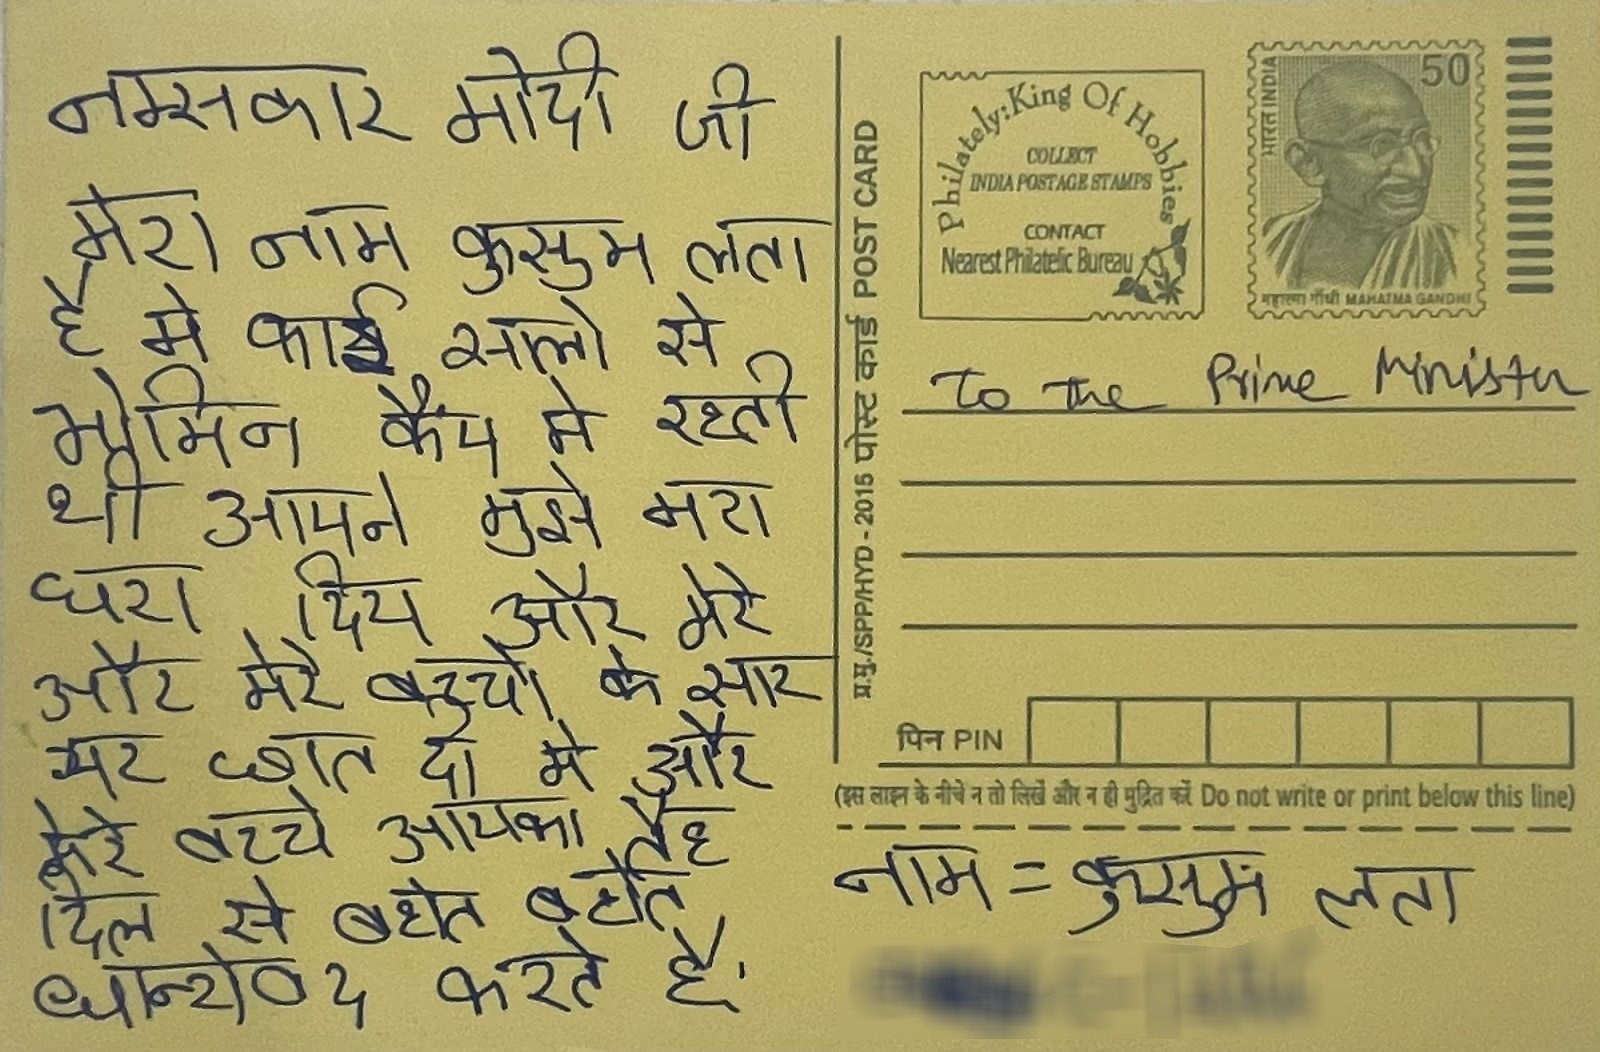 नमसकार मोदी जी
मेरा नाम कुसुम लता
है मे काई सालो से
भोमिन कैंप मे रहती
थी आपने मुझे मरा
घरा दिय और मेरे
और मेरे बच्चो के सार
पर छात दी मे और
मेरे बच्चे आपका तैह
दिल से बहोत बहोत
धान्येवाद करते है.
प्र.मु./SPP/HYD - 2015 पोस्ट कार्ड POST CARD
Philately: King Of Hobbies
COLLECT
INDIA POSTAGE STAMPS
CONTACT
Nearest Philatelic Bureau
भारत INDIA
50
महात्मा गाँधी MAHATMA GANDHI
To The Prime Minister
पिन PIN
(इस लाइन के नीचे न तो लिखें और न ही मुद्रित करें Do not write or print below this line)
नाम = कुसुम लता